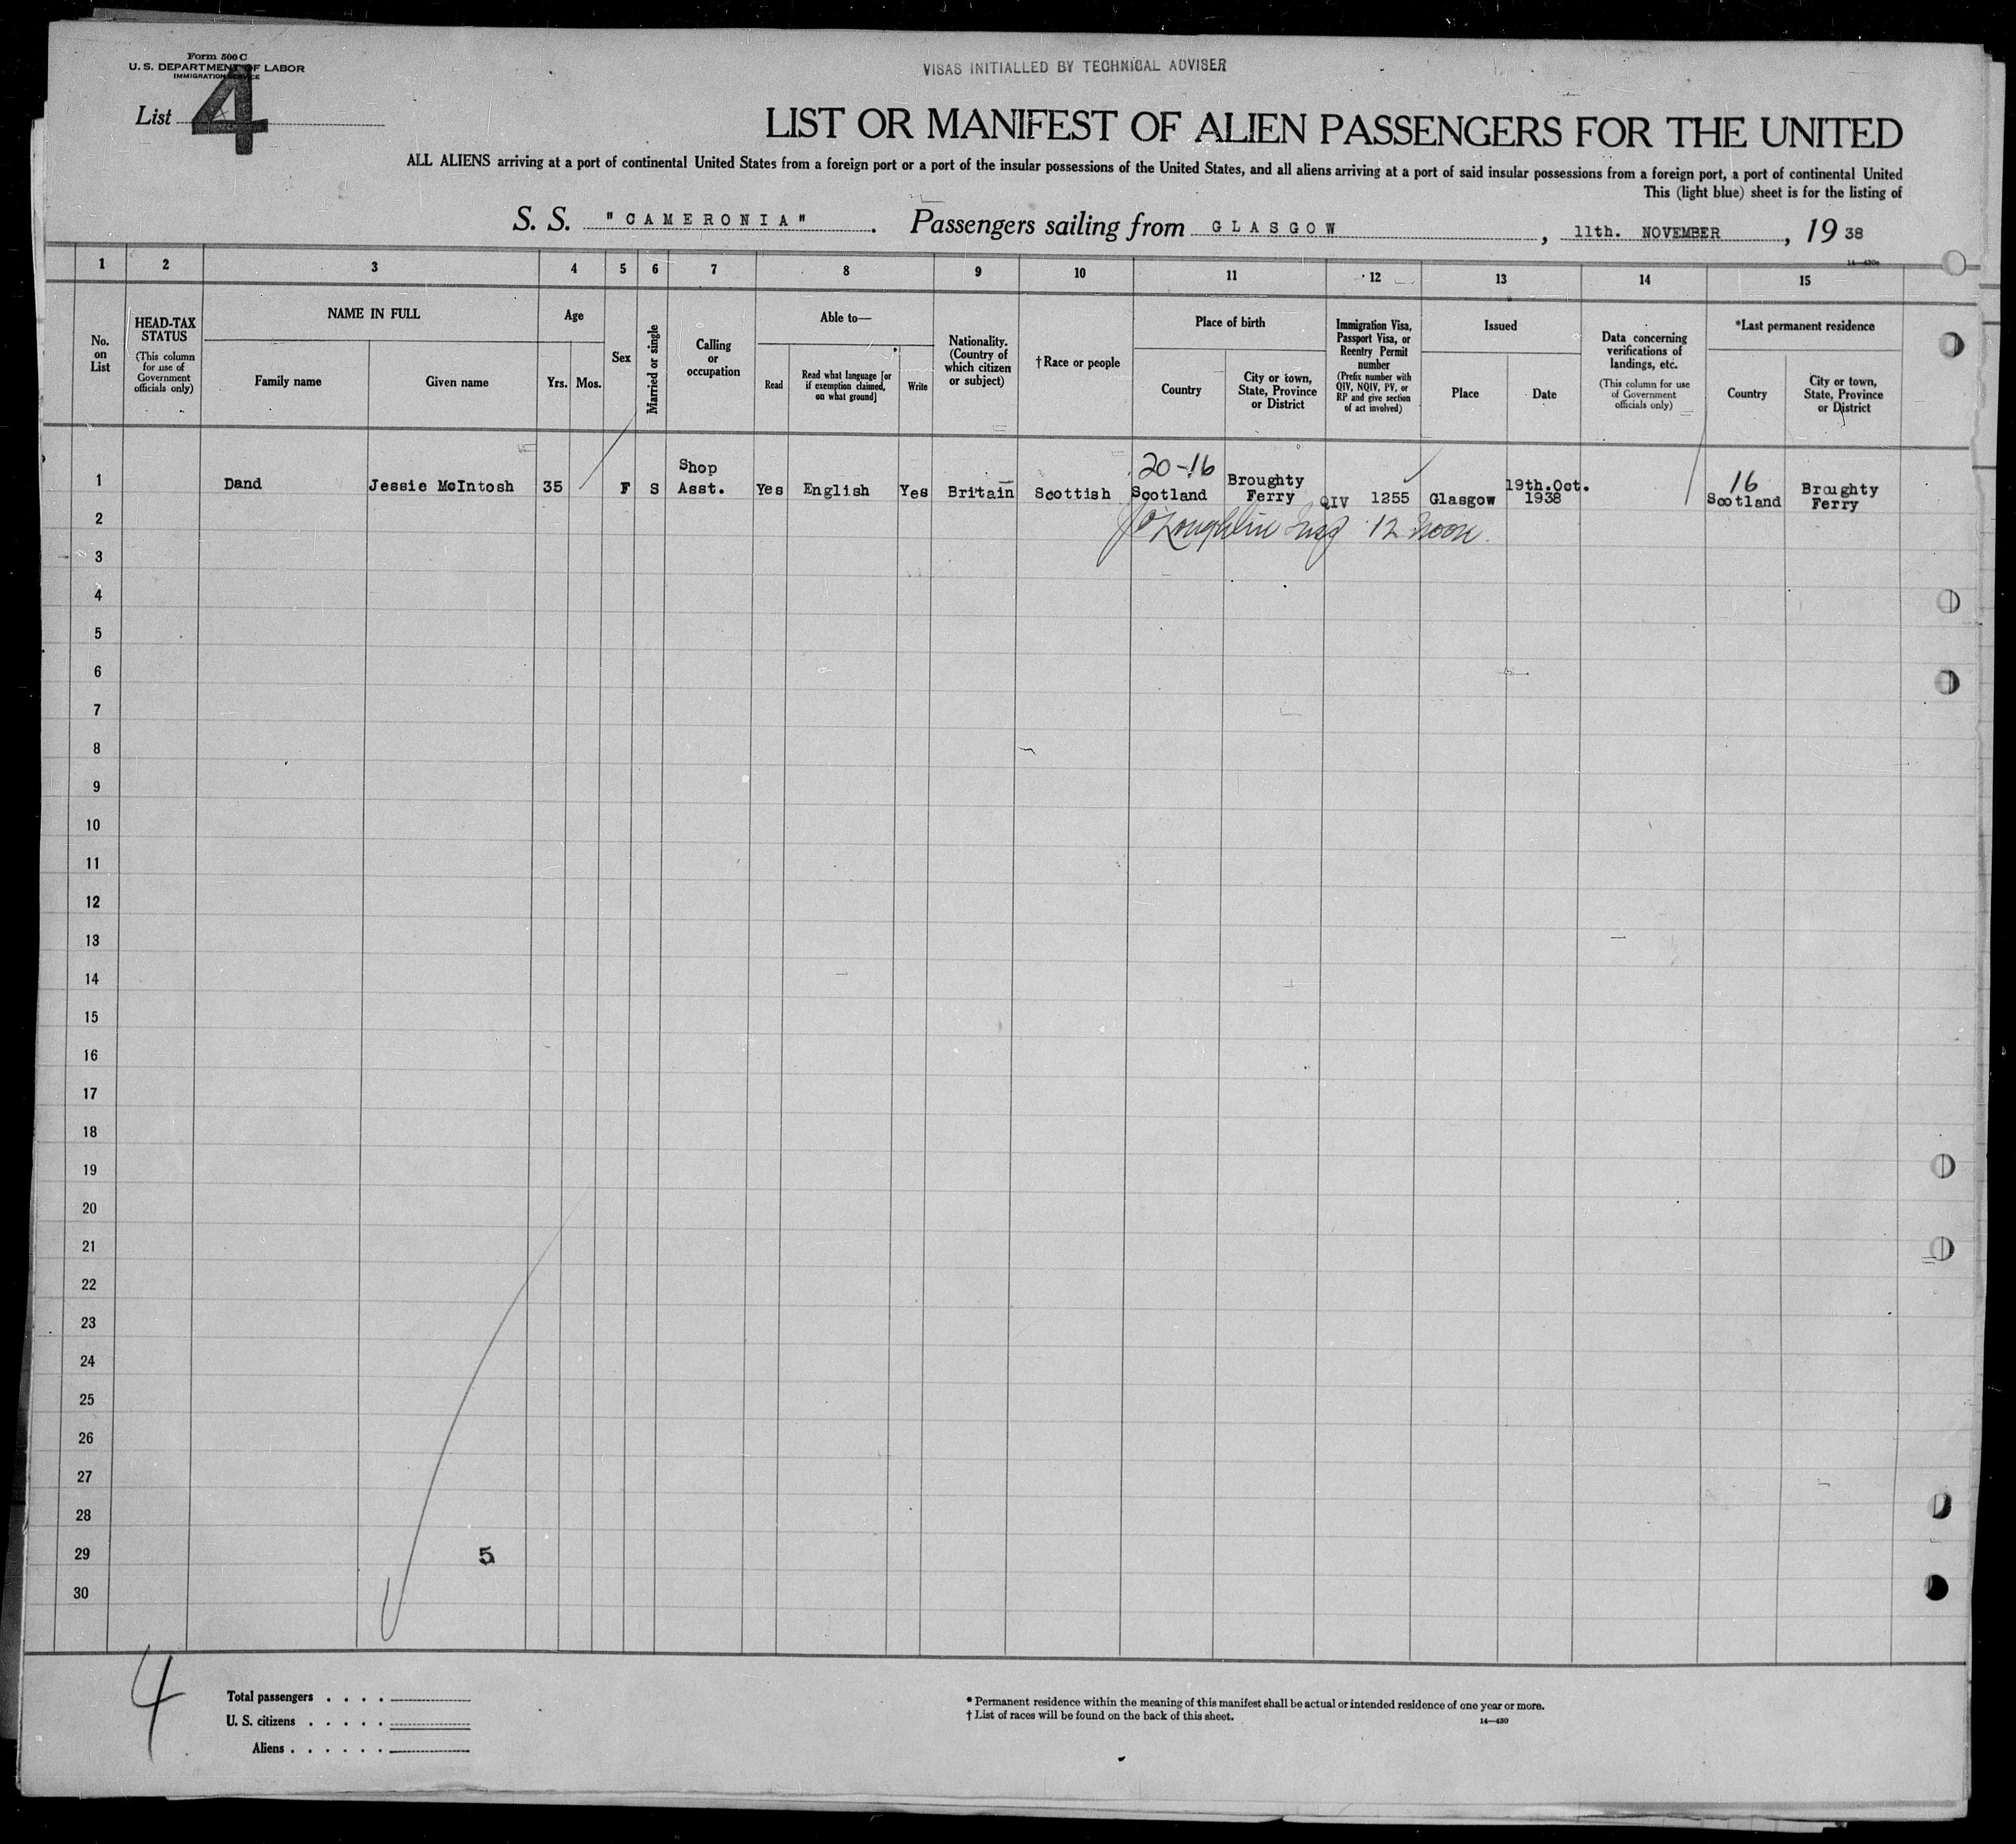 Form 500 C
U. S. DEPARTMENT OF LABOR
IMMIGRATION SERVICE
VISAS INITIALLED BY TECHNICAL ADVISER
List 4
LIST OR MANIFEST OF ALIEN PASSENGERS FOR THE UNITED
ALL ALIENS arriving at a port of continental United States from a foreign port or a port of the insular possessions of the United States, and all aliens arriving at a port of said insular possessions from a foreign port, a port of continental United
This (light blue) sheet is for the listing of
S. S. "CAMERONIA". Passengers sailing from GLASGOW, 11th. NOVEMBER, 1938
14—430c
1 2 3 4 5 6 7 8 9 10 11 12 13 14 15
No. on List
HEAD-TAX STATUS
(This column for use of Government officials only)
NAME IN FULL
Family name
Given name
Age
Yrs.
Mos.
Sex
Married or single
Calling or occupation
Able to—
Read
Read what language [or if exemption claimed, on what ground]
Write
Nationality. (Country of which citizen or subject)
† Race or people
Place of birth
Country
City or town, State, Province or District
Immigration Visa, Passport Visa, or Reentry Permit number
(Prefix number with QIV, NQIV, PV, or RP and give section of act involved)
Issued
Place
Date
Data concerning verifications of landings, etc.
(This column for use of Government officials only)
*Last permanent residence
Country
City or town, State, Province or District
20-16
16
1 Dand Jessie McIntosh 35 F S Shop Asst. Yes English Yes Britain Scottish Scotland Broughty Ferry QIV 1255 Glasgow 19th.Oct. 1938 Scotland Broughty Ferry
2 O'Loughlin Insp 12 Noon.
3
4
5
6
7
8
9
10
11
12
13
14
15
16
17
18
19
20
21
22
23
24
25
26
27
28
29 5
30
4
Total passengers . . . .
U. S. citizens . . . . .
Aliens . . . . . .
* Permanent residence within the meaning of this manifest shall be actual or intended residence of one year or more.
† List of races will be found on the back of this sheet.
14—430